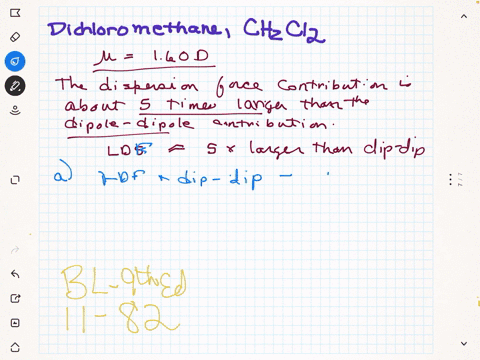 Dichloromethane, CH2Cl2
μ = 1.60D
The dispersion force contribution is
about 5 times larger than the
dipole-dipole contribution.
LDF = 5 x larger than dip-dip
a) LDF + dip-dip -
BL-9th Ed
11-82